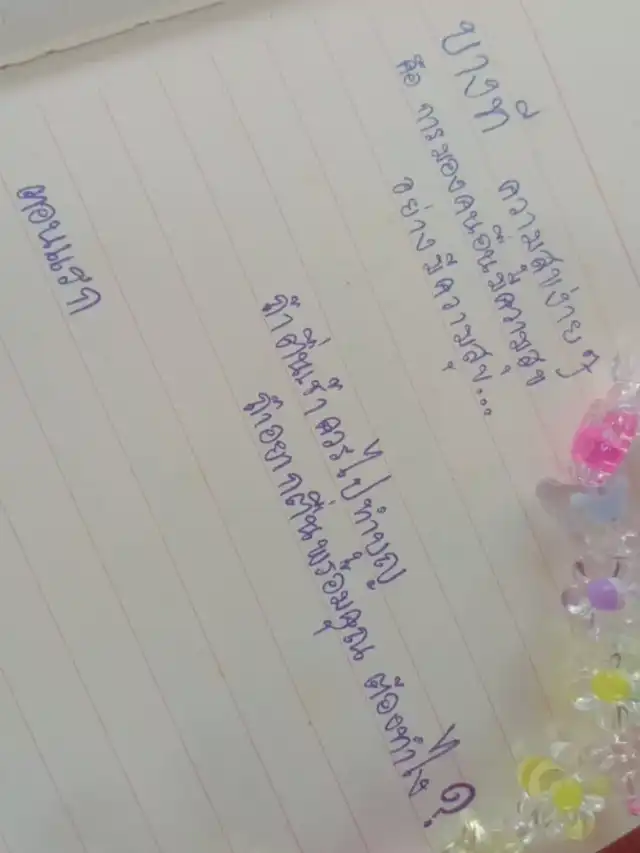 บางที ความสุขง่าย ๆ
คือ การมองคนอื่นมีความสุข
อย่างมีความสุข...
ถ้าตื่นเช้า ควรไปทำบุญ
ถ้าอยากตื่นพร้อมคุณ ต้องทำไง ?
ตอนแรก